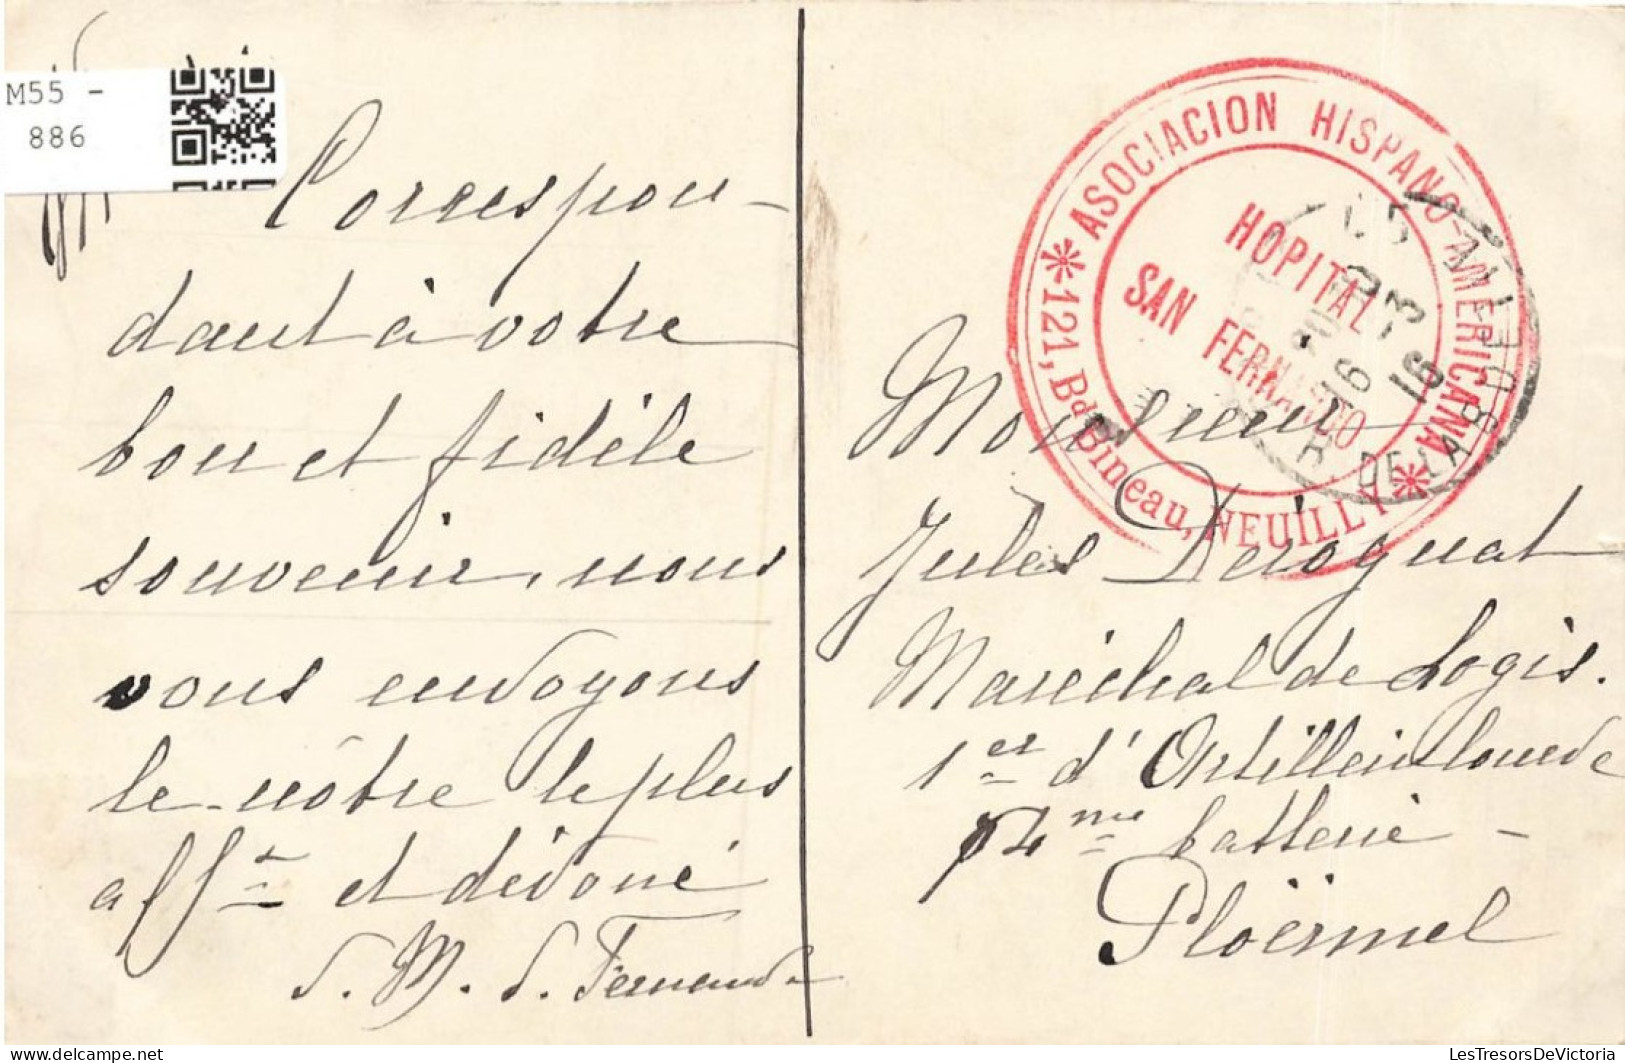 M55 -
886
Correspon-
dant à votre
bon et fidèle
souvenir, nous
vous envoyons
le nôtre le plus
afft et dévoué
S. M. S. Fernande
ASOCIACION HISPANO-AMERICANA
HOPITAL
SAN FERNANDO
* 121, Bd Bineau, NEUILLY *
16 -3
16
R. DE LA B
Monsieur
Jules Deroguat
Maréchal de Logis.
1er d'Artillerie lourde
74me batterie -
Ploërmel
delcampe.net
LesTresorsDeVictoria